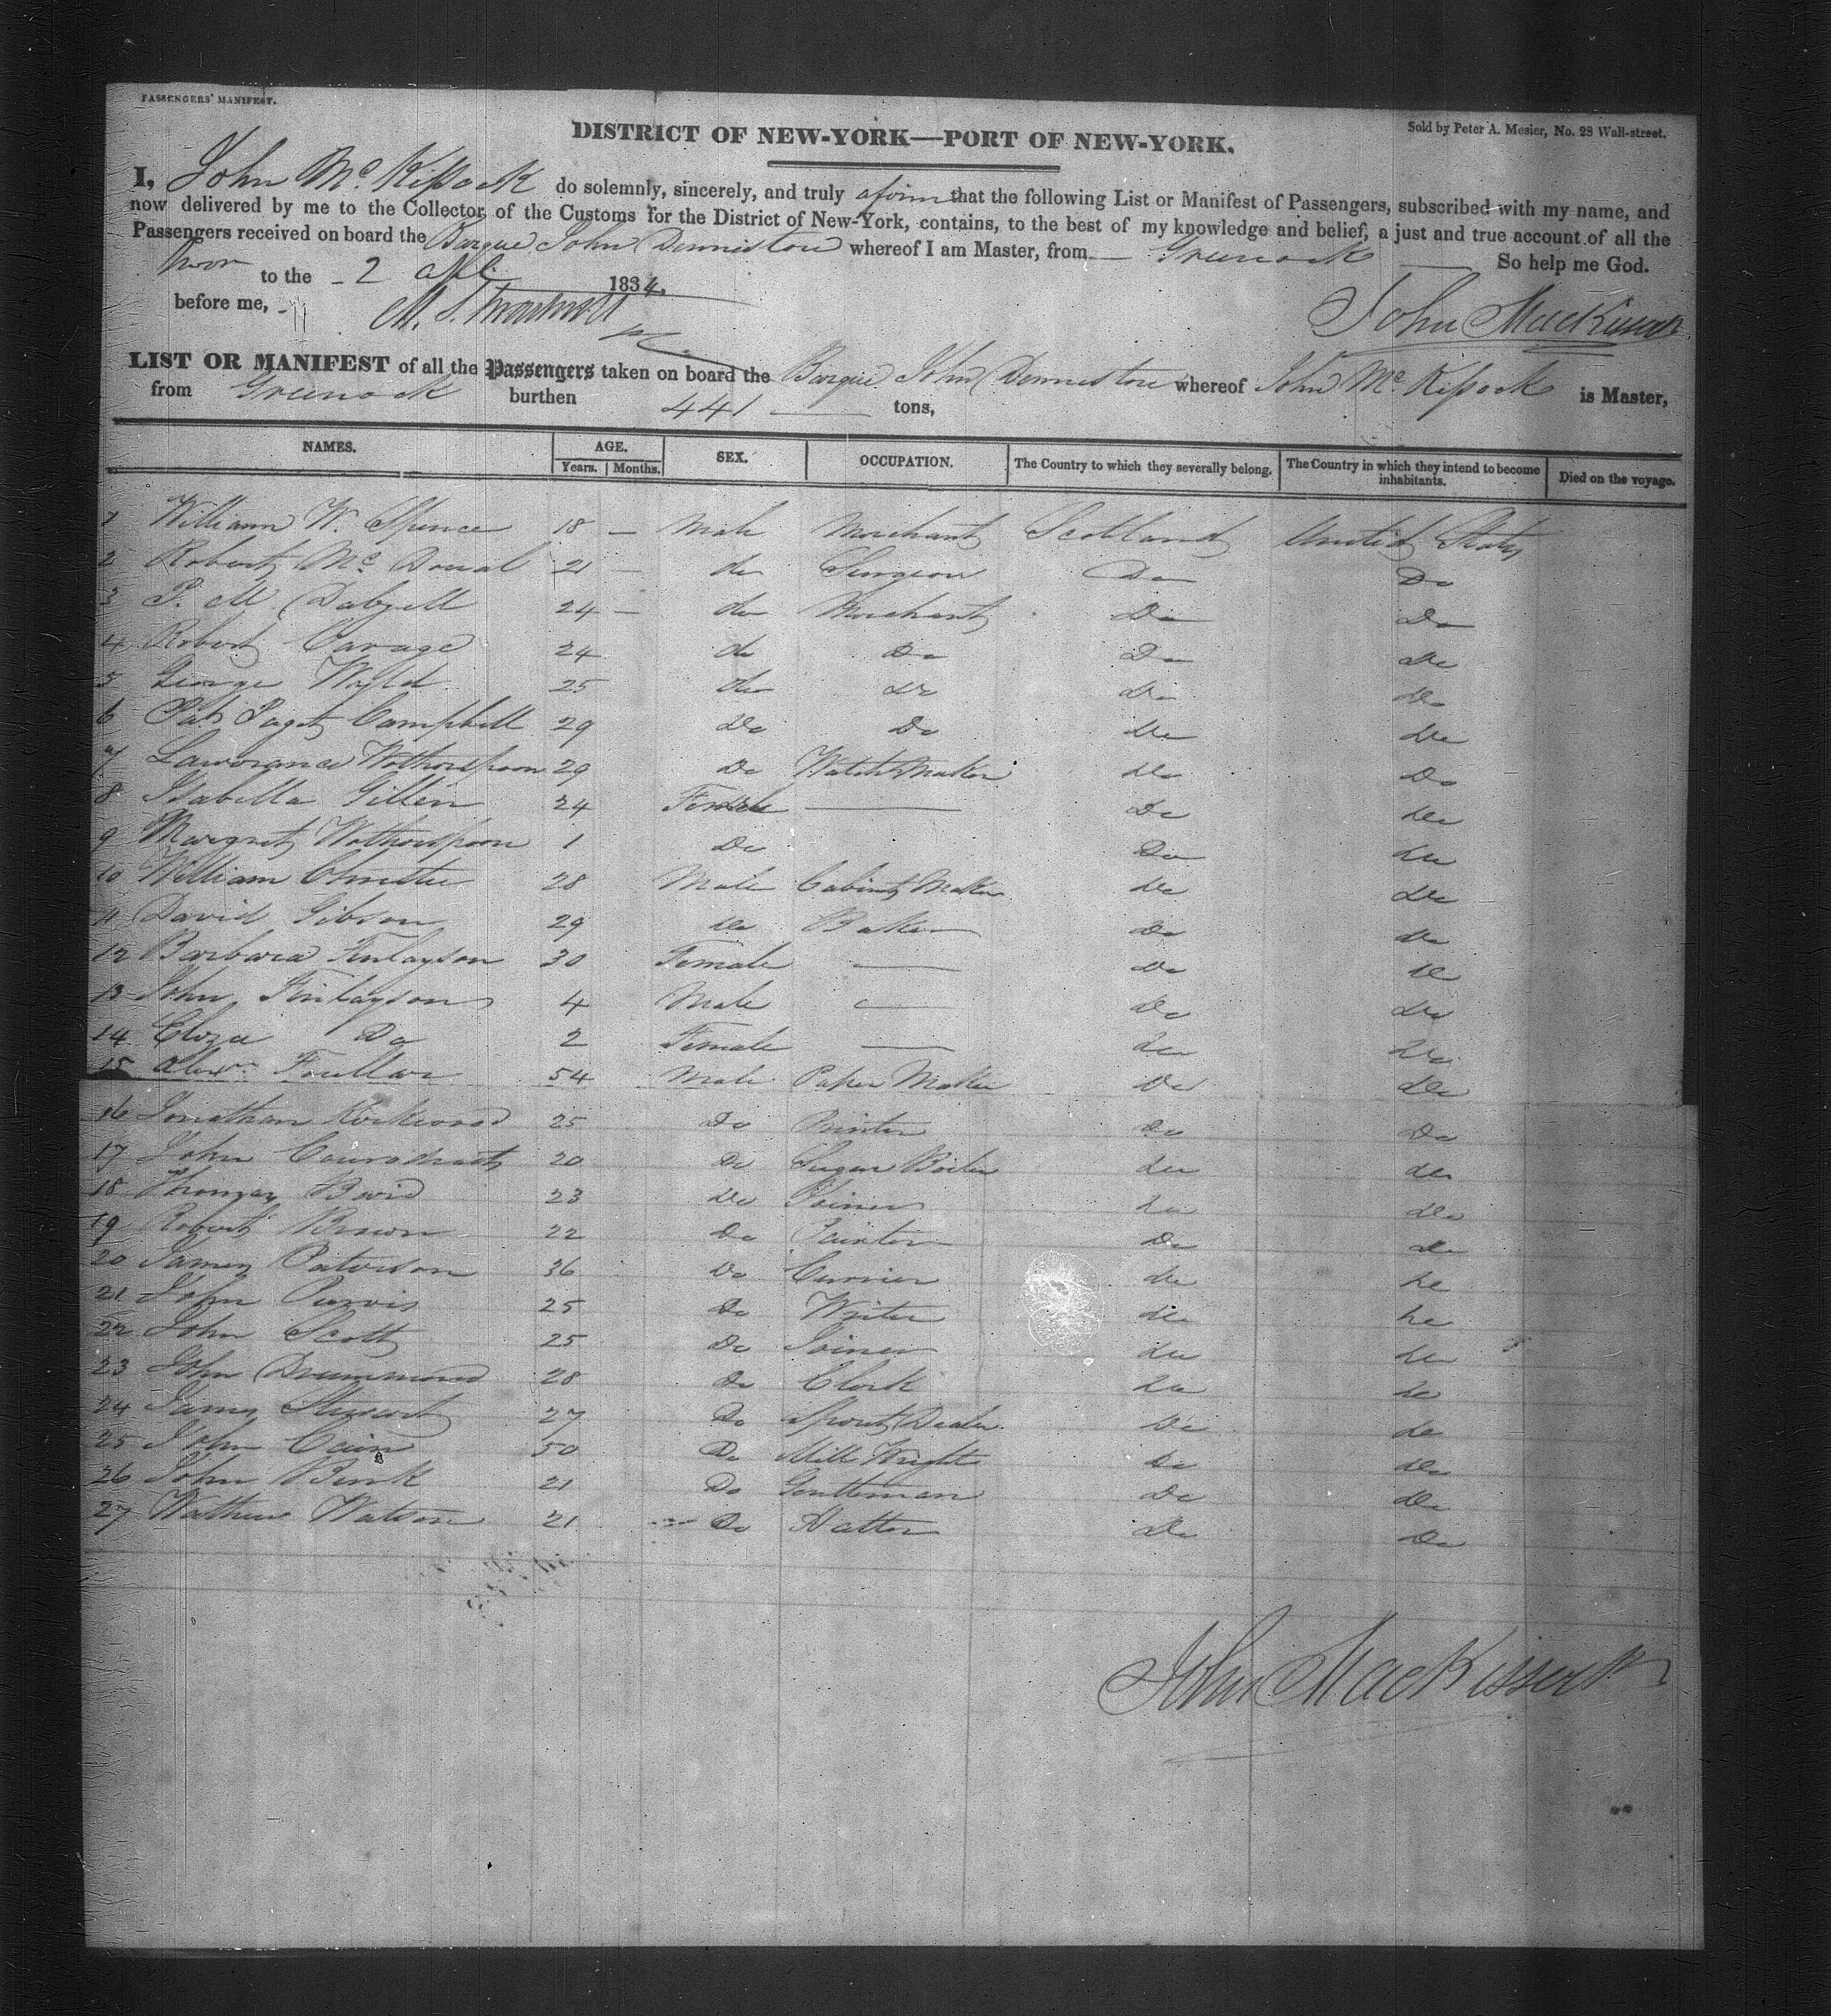 PASSENGERS' MANIFEST.
Sold by Peter A. Mesier, No. 28 Wall-street.
DISTRICT OF NEW-YORK—PORT OF NEW-YORK.
I, John Mc Kissock do solemnly, sincerely, and truly that the following List or Manifest of Passengers, subscribed with my name, and
now delivered by me to the Collector, of the Customs for the District of New-York, contains, to the best of my knowledge and belief, a just and true account of all the
Passengers received on board the Barque John Denniston whereof I am Master, from Greenock So help me God.
to the 2 1834.
before me,
John MacKissock
LIST OR MANIFEST of all the Passengers taken on board the Barque John Denniston whereof John Mc Kissock is Master,
from Greenock burthen 441 tons,
NAMES. AGE. SEX. OCCUPATION. The Country to which they severally belong. The Country in which they intend to become inhabitants. Died on the voyage.
Years. Months.
1 William W. Spence 18 — Male Merchant Scotland United States
2 Robert Mc Doual 21 — do Surgeon Do Do
3 P. M. Dalzell 24 — do Merchant Do Do
4 Robert Savage 24 do Do Do Do
5 George Wyld 25 do do Do do
6 Paget Campbell 29 Do Do do do
7 Lawrance Wotherspoon 29 Do Watch Maker do Do
8 Isabella Gillen 24 Female — Do do
9 Margret Wotherspoon 1 Do Do do
10 William Christie 28 Male Cabinet Maker do Do
11 David Gibson 29 do Baker Do do
12 Barbara Finlayson 30 Female — Do do
13 John Finlayson 4 Male — Do Do
14 Eliza Do 2 Female — do do
15 Alexr. 54 Male Paper Maker Do Do
16 Jonathan Kirkwood 25 Do Do Do
17 John 20 Do Sugar Boiler do do
18 Thomas 23 Do Joiner do do
19 Robert Brown 22 Do Painter Do do
20 James Paterson 36 Do Currier do do
21 John Purvis 25 Do Writer do do
22 John Scott 25 Do Joiner do do
23 John Drummond 28 Do Clerk do do
24 James Stewart 27 Do Dealer Do do
25 John 50 Do Mill Wright Do do
26 John 21 Do Gentleman do do
27 Watson 21 Do Hatter Do Do
John MacKissock